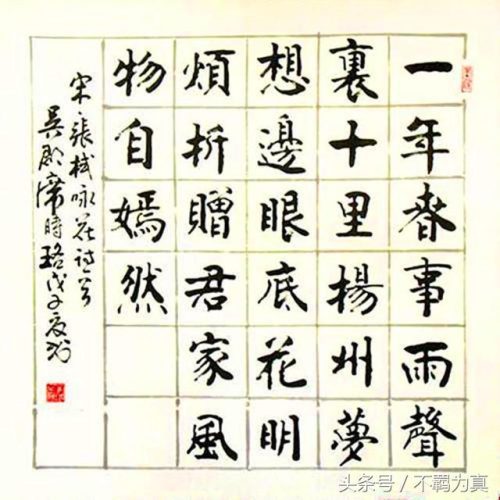 一年春事雨聲
裏十里楊州夢
想邊眼底花明
煩折贈君家風
物自嫣然
宋張栻咏花詩
吳郡席時珞戊子夏
头条号 / 不羁为真